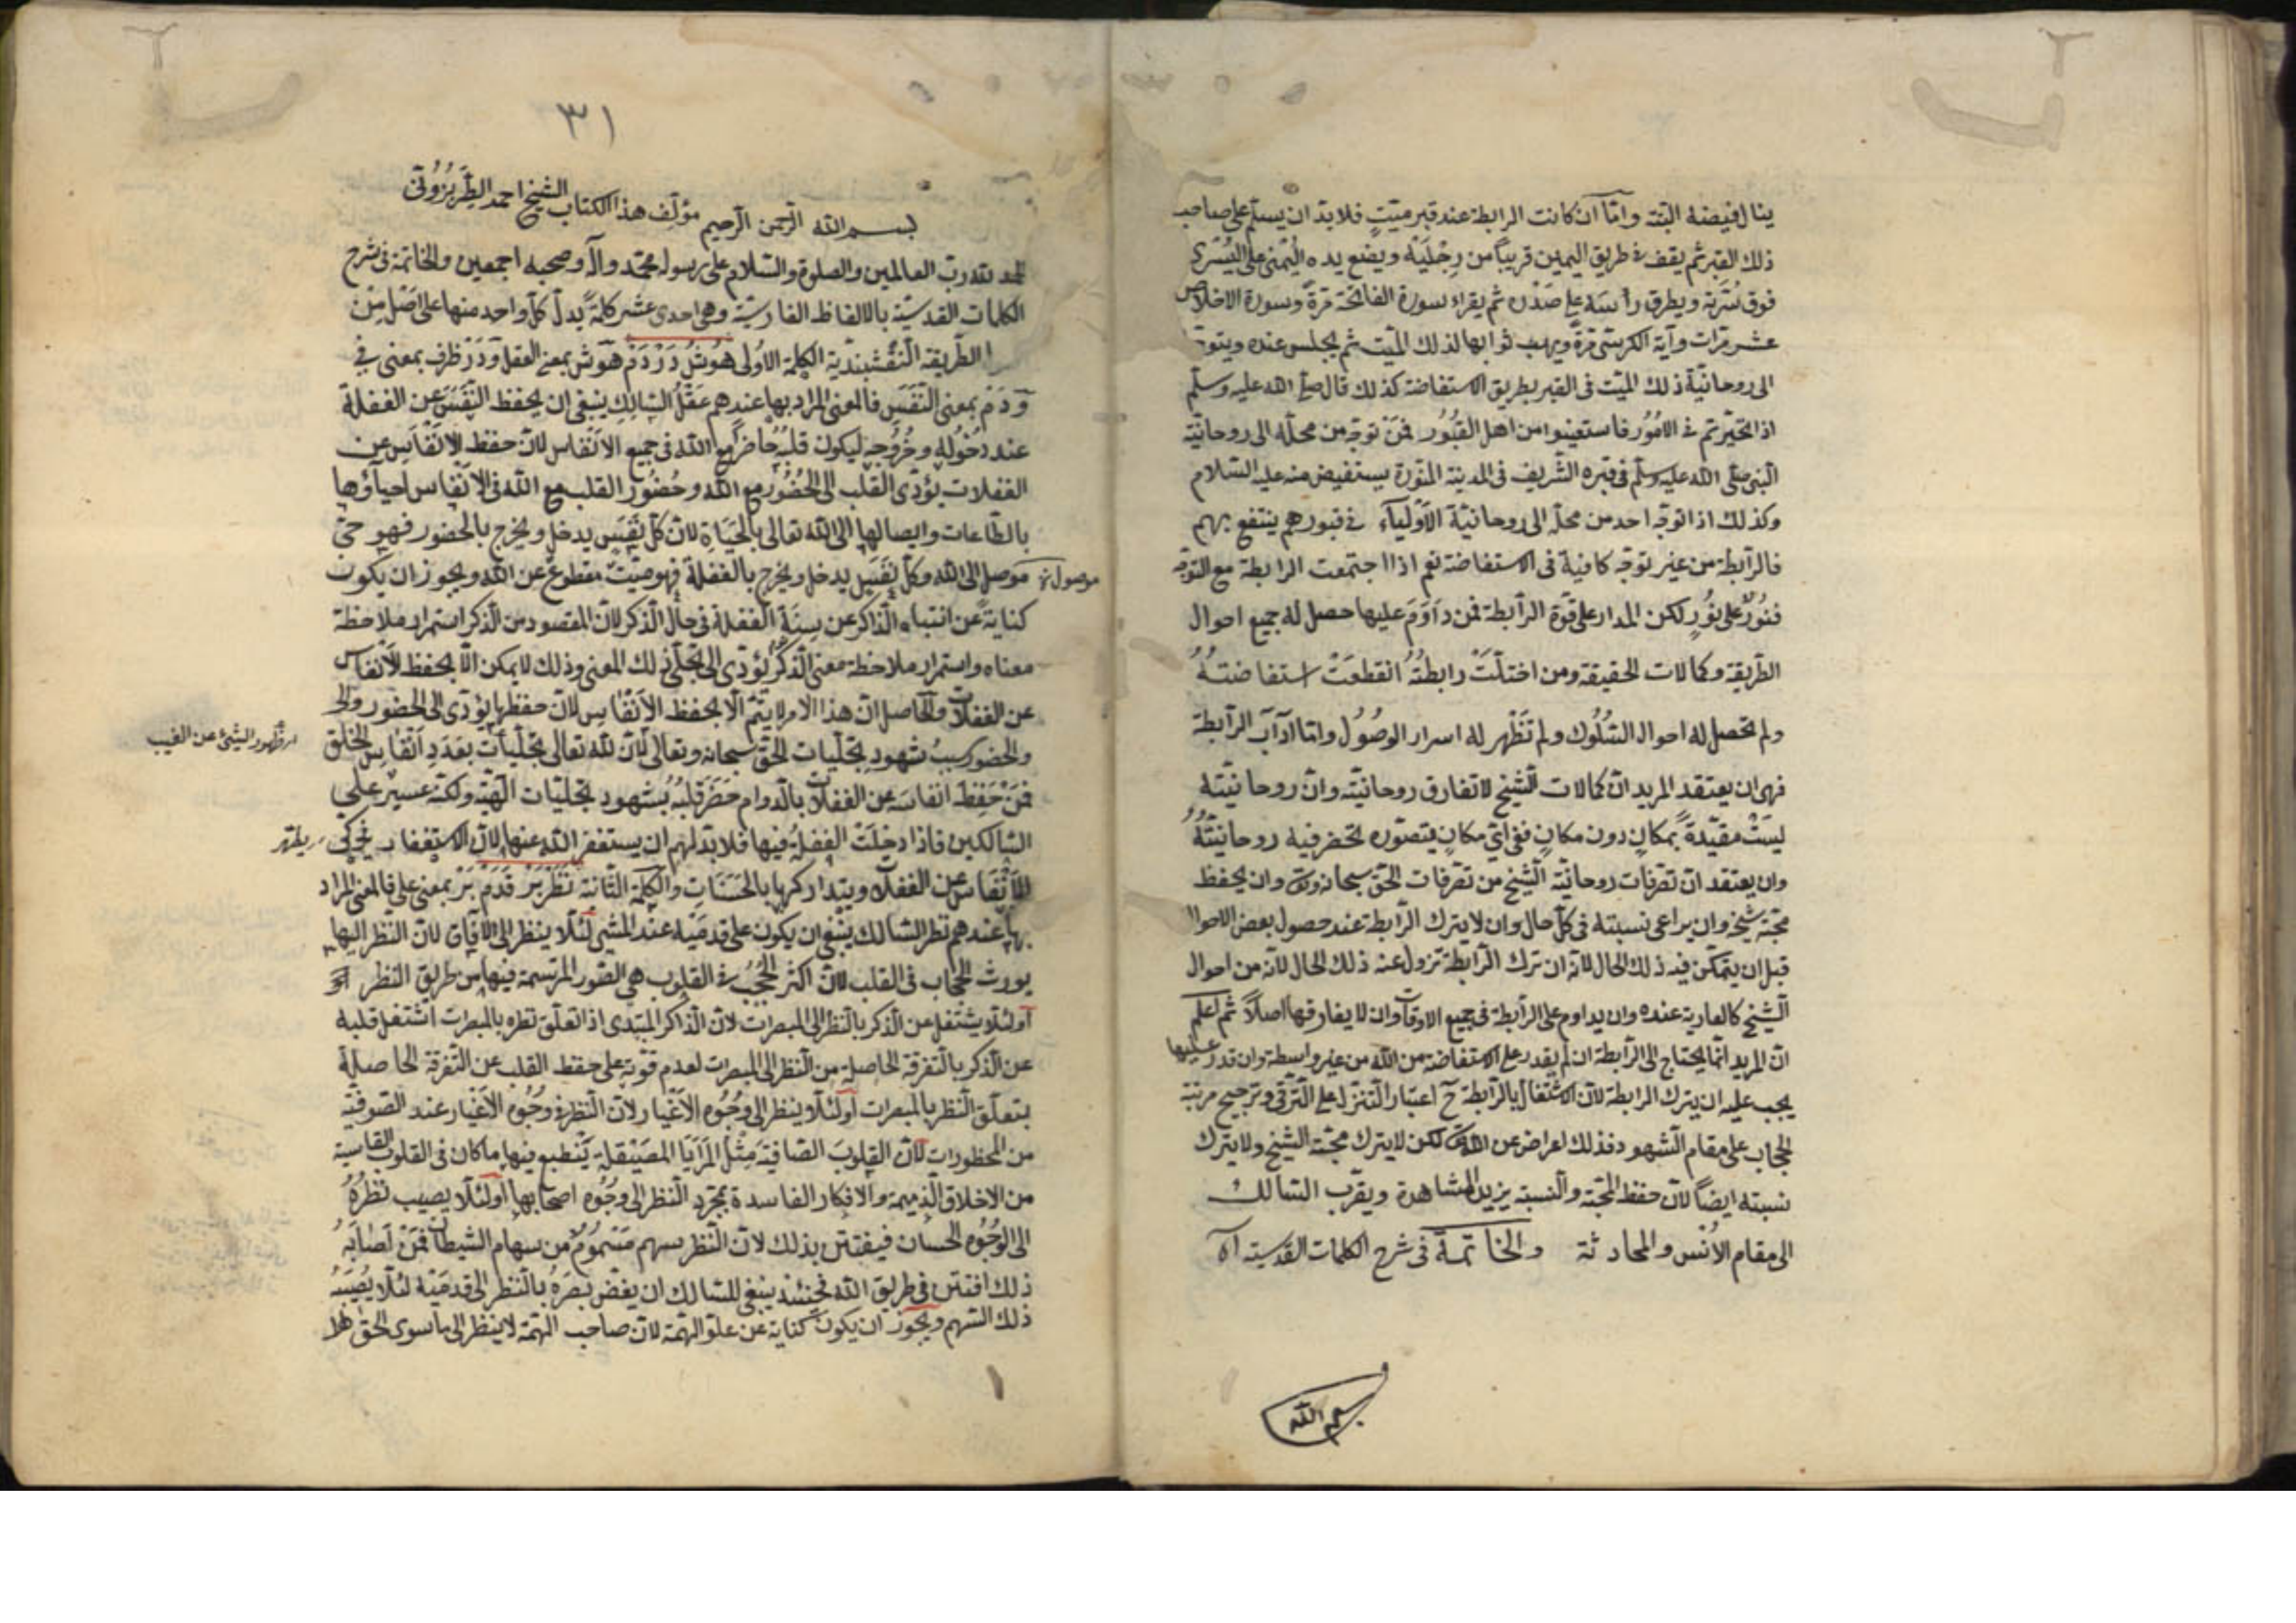 ينال فيضه البتة وامّا ان كانت الرابطة عند قبر ميّتٍ فلا بدّ ان يسلّم على صاحب
ذلك القبر ثم يقف فى طريق اليمين قريباً من رجليه ويضع يده اليُمنى على اليُسْرى
فوق سُرّته ويطرق رأسه على صَدْره ثم يقراء سورة الفاتحة مرّةً وسورة الاخلاص
عشر مرّات وآية الكرسىّ مرّةً ويهب ثوابها لذلك الميّت ثم يجلس عنده ويتوجّه
الى روحانيّة ذلك الميّت فى القبر بطريق الاستفاضة كذلك قال صلى الله عليه وسلّم
اذا تحيّرتم فى الامُوُر فاستعينوا من اهل القبُوُر فمَنْ توجّه من محلّه الى روحانيّة
النّبى صلّى الله عليه وسلّم فى قبره الشّريف فى المدينة المنوّرة يستفيض منه عليه السّلام
وكذلك اذا توجّه احد من محلّه الى روحانيّة الاَوْلياَء فى قبورهم ينتفع بهم
فالرّابطة من غير توجّه كافية فى الاستفاضة نعم اذا اجتمعت الرابطة مع التوجّه
فنُوُرٌ على نُوُرٍ لكن المدار على قوّة الرابطة فمن دَاوَمَ عليها حصل له جميع احوال
الطّريقة وكمالات الحقيقة ومن اختلّتْ رابطتُهُ انقطعَتْ استفاضتُهُ
ولم تحصل له احوال السّلُوُك ولم تَظْهر له اسرار الوصُوُل وامّا آدآب الرّابطة
فهى ان يعتقد المريد انّ كمالات الشّيخ لا تفارق روحانيّته وانّ روحانيّته
ليسَتْ مقيّدةً بمكانٍ دون مكانٍ ففى اىّ مكانٍ يتصوّره تحضر فيه روحانيّتُهُ
وان يعتقد انّ تصرّفات روحانيّة الشّيخ من تصرّفات الحقّ سبحانه وتع وان يحفظ
محبّة شيخه وان يراعى نسبته فى كلّ حال وان لا يترك الرّابطة عند حصول بعض الاحوال
قبل ان يتمكّن فيه ذلك الحال لانّه ان ترك الرّابطة تزول عنه ذلك الحال لانّه من احوال
الشّيخ كالعارية عنده وان يداوم على الرّابطة فى جميع الاوقات وان لا يفارقها اصلاً ثم اعلم
انّ المريد انّما يحتاج الى الرّابطة ان لم يقدر على الاستفاضة من الله من غير واسطة وان قدر عليها
يجب عليه ان يترك الرابطة لانّ الاشتغال بالرّابطة ح اعتبار التّنزّل على التّرقّى وترجيح مرتبة
الحجاب على مقام الشّهود فذلك اعراض عن الله تع لكن لا يترك محبّة الشّيخ ولا يترك
نسبته ايضاً لانّ حفظ المحبّة والنّسبة يزيد المشاهدة ويقرّب السّالك
الى مقام الاُنْس والمحادثة والخاتمة فى شرح الكلمات القدسيّة
بسم الله
٣١
بسم الله الرّحمن الرّحيم مؤلّف هذا الكتاب الشّيخ احمد الطّرَبْزُوُنى
الحمد لله ربّ العالمين والصلوة والسّلام على رسوله محمّد وآله وصحبه اجمعين والخاتمة فى شرح
الكلمات القدسيّة بالالفاظ الفارسيّة وهى احدى عشر كلمةً يدلّ كلّ واحد منها على اصْل مِنْ
الطّريقة النّقْشبنديّة الكلمة الاُولى هُوشْ دَرْدَمْ هوش بمعنى العقل ودَرْ ظرف بمعنى فى
وَدَمْ بمعنى النّفَس فالمعنى المراد بها عندهم عَقْلُ السّالِك ينبغى ان يحفظ النّفَسَ عن الغفلة
عند دُخُوُله وخُرُوُجه ليكون قلبُهُ حاضراً مع الله فى جميع الاَنْفاس لانّ حفظ الاَنْفاس عن
الغفلات يؤدّى القلب الى الحُضُوُر مع الله وحُضُوُر القلب مع الله فى الاَنْفاس احياؤها
بالطّاعات وايصالها الى الله تعالى بالحَيَاة لانّ كلّ نَفَسٍ يدخل ويخرج بالحضور فهو حىّ
موصل الى الله وكلّ نَفَسٍ يدخل ويخرج بالغفلة فهو ميّتٌ مقطوعٌ عن الله ويجوز ان يكون
موصول
كنايةً عن انتباه الذّاكر عن سِنَةِ الغفلة فى حال الذّكر لانّ المقصود من الذّكر استمرار ملاحظة
معناه واستمرار ملاحظة معنى الذّكر يؤدّى الى تجلّى ذلك المعنى وذلك لا يمكن الّا بحفظ الاَنْفاس
عن الغفلات والحاصل انّ هذا الامر لا يتمّ الّا بحفظ الاَنْفاس لانّ حفظها يؤدّى الى الحضور
والحضور سببُ شهودِ تجلّيات الحقّ سبحانه وتعالى لانّ لله تعالى تجلّيات بعَدَدِ اَنْفاس الخلق
ظهور الشئ عن الغيب
فمَنْ حَفِظَ انفاسَه عن الغفلات بالدّوام حَضَرَ قلبُهُ بشهود تجلّيات الٓهيّة ولكنّه عسيرٌ على
السّالكين فاذا دخلَتْ الغفلةُ فيها فلا بدّ لهم ان يستغفر الله عنها لانّ الاستغفار يزكّى
يطهّر
الاَنْفاس عن الغفلات ويتداركها بالحَسَنَاتِ والكلمة الثّانية نَظَرْ بَرْ قَدَمْ بَرْ بمعنى على فالمعنى المراد
بها عندهم نظر السّالك ينبغى ان يكون على قدمَيْه عند المشى لئلّا ينظر الى الآفاق لانّ النّظر اليها
يورث الحجاب فى القلب لانّ اكثر الحُجُب فى القلوب هى الصّور المرتسمة فيها من طريق النّظر
اولئلّا يشتغل عن الذّكر بالنّظر الى المبصرات لانّ الذّاكر المبتدى اذا تعلّق نظره بالمبصرات اشتغل قلبه
عن الذّكر بالتّفرقة الحاصلة من النّظر الى المبصرات لعدم قوّته على حفظ القلب عن التّفرقة الحاصلة
بتعلّق النّظر بالمبصرات اولئلّا ينظر الى وجُوُه الاَغْيار لانّ النّظر فى وجُوُه الاَغْيار عند الصّوفيّة
من المحظورات لانّ القلوبَ الصّافيةَ مِثْلُ المَرَايَا المصَيْقلة يَنْطبع فيها ما كان فى القلوب القاسية
من الاخلاق الذّميمة والافكار الفاسدة بمجرّد النّظر الى وجُوُه اصحابها اولئلّا يصيب نظرُهُ
الى الوجُوُه الحسان فيفتتن بذلك لانّ النّظر سهم مَسْمُوُمٌ من سهام الشيطان فمَنْ اَصَابَهُ
ذلك افتتن فى طريق الله فحينئذ ينبغى للسّالك ان يغضّ بصرَهُ بالنّظر الى قدمَيْه لئلّا يُصيبَهُ
ذلك السّهم ويجوز ان يكون كناية عن علوّ الهمّة لانّ صاحب الهمّة لا ينظر الى ما سوى الحقّ